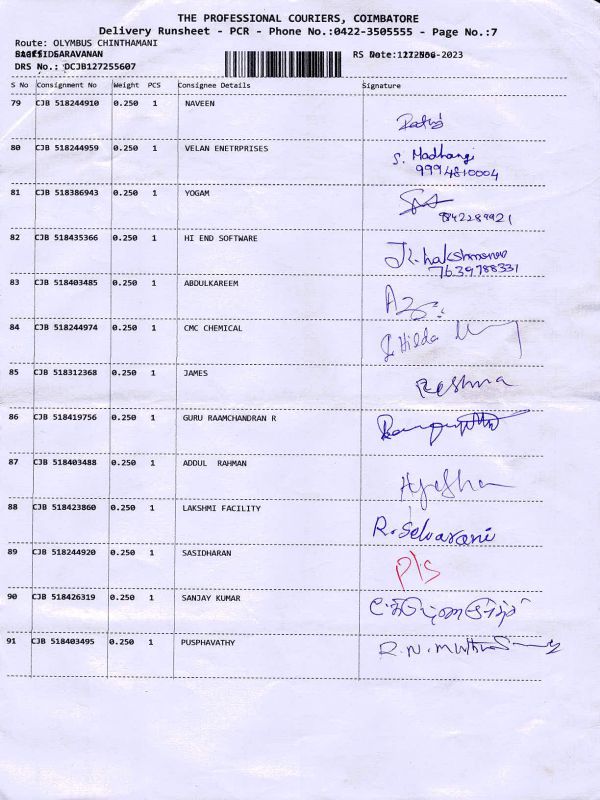 THE PROFESSIONAL COURIERS, COIMBATORE
Delivery Runsheet - PCR - Phone No.:0422-3505555 - Page No.:7
Route: OLYMBUS CHINTHAMANI
SARAVANAN
RS Date: -2023
DRS No.: DCJB127255607
S No Consignment No Weight PCS Consignee Details Signature
79 CJB 518244910 0.250 1 NAVEEN
80 CJB 518244959 0.250 1 VELAN ENETRPRISES S. Madhangi
9994810004
81 CJB 518386943 0.250 1 YOGAM
842289921
82 CJB 518435366 0.250 1 HI END SOFTWARE
7639788331
83 CJB 518403485 0.250 1 ABDULKAREEM
84 CJB 518244974 0.250 1 CMC CHEMICAL Hilda
85 CJB 518312368 0.250 1 JAMES Reshma
86 CJB 518419756 0.250 1 GURU RAAMCHANDRAN R
87 CJB 518403488 0.250 1 ADDUL RAHMAN Ayesha
88 CJB 518423860 0.250 1 LAKSHMI FACILITY R. Selvarani
89 CJB 518244920 0.250 1 SASIDHARAN P/S
90 CJB 518426319 0.250 1 SANJAY KUMAR
91 CJB 518403495 0.250 1 PUSPHAVATHY R.N.